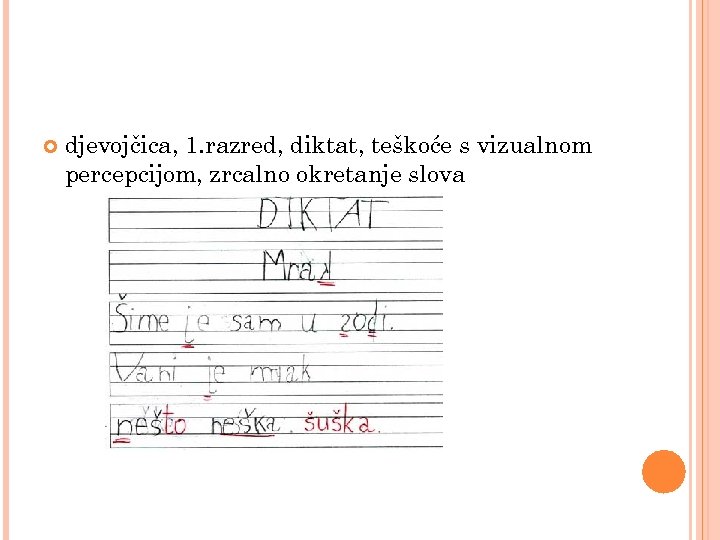 djevojčica, 1. razred, diktat, teškoće s vizualnom
percepcijom, zrcalno okretanje slova
DIKTAT
Mrak
Šime je sam u zodi.
Vani je mlak
nešto neška. šuška.